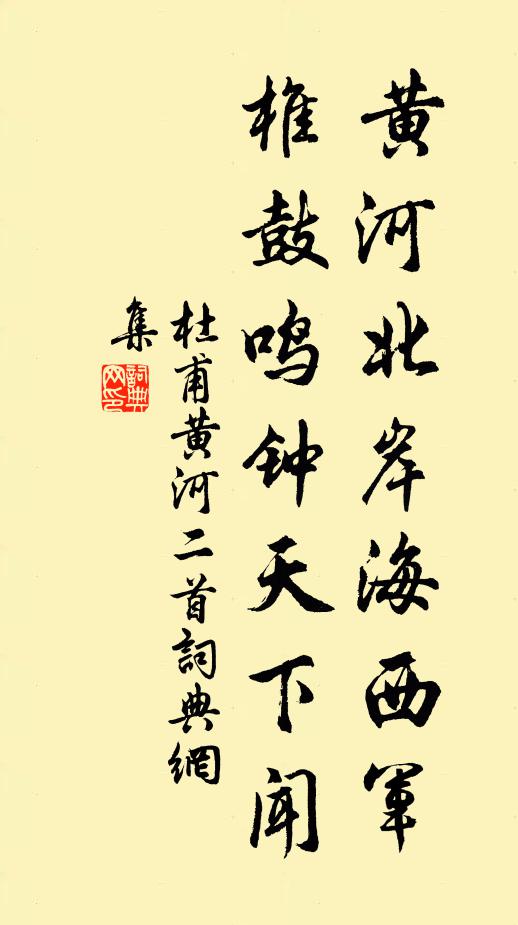 黄河北岸海西军
椎鼓鸣钟天下闻
杜甫黄河二首詞典網
集
詞典
网印